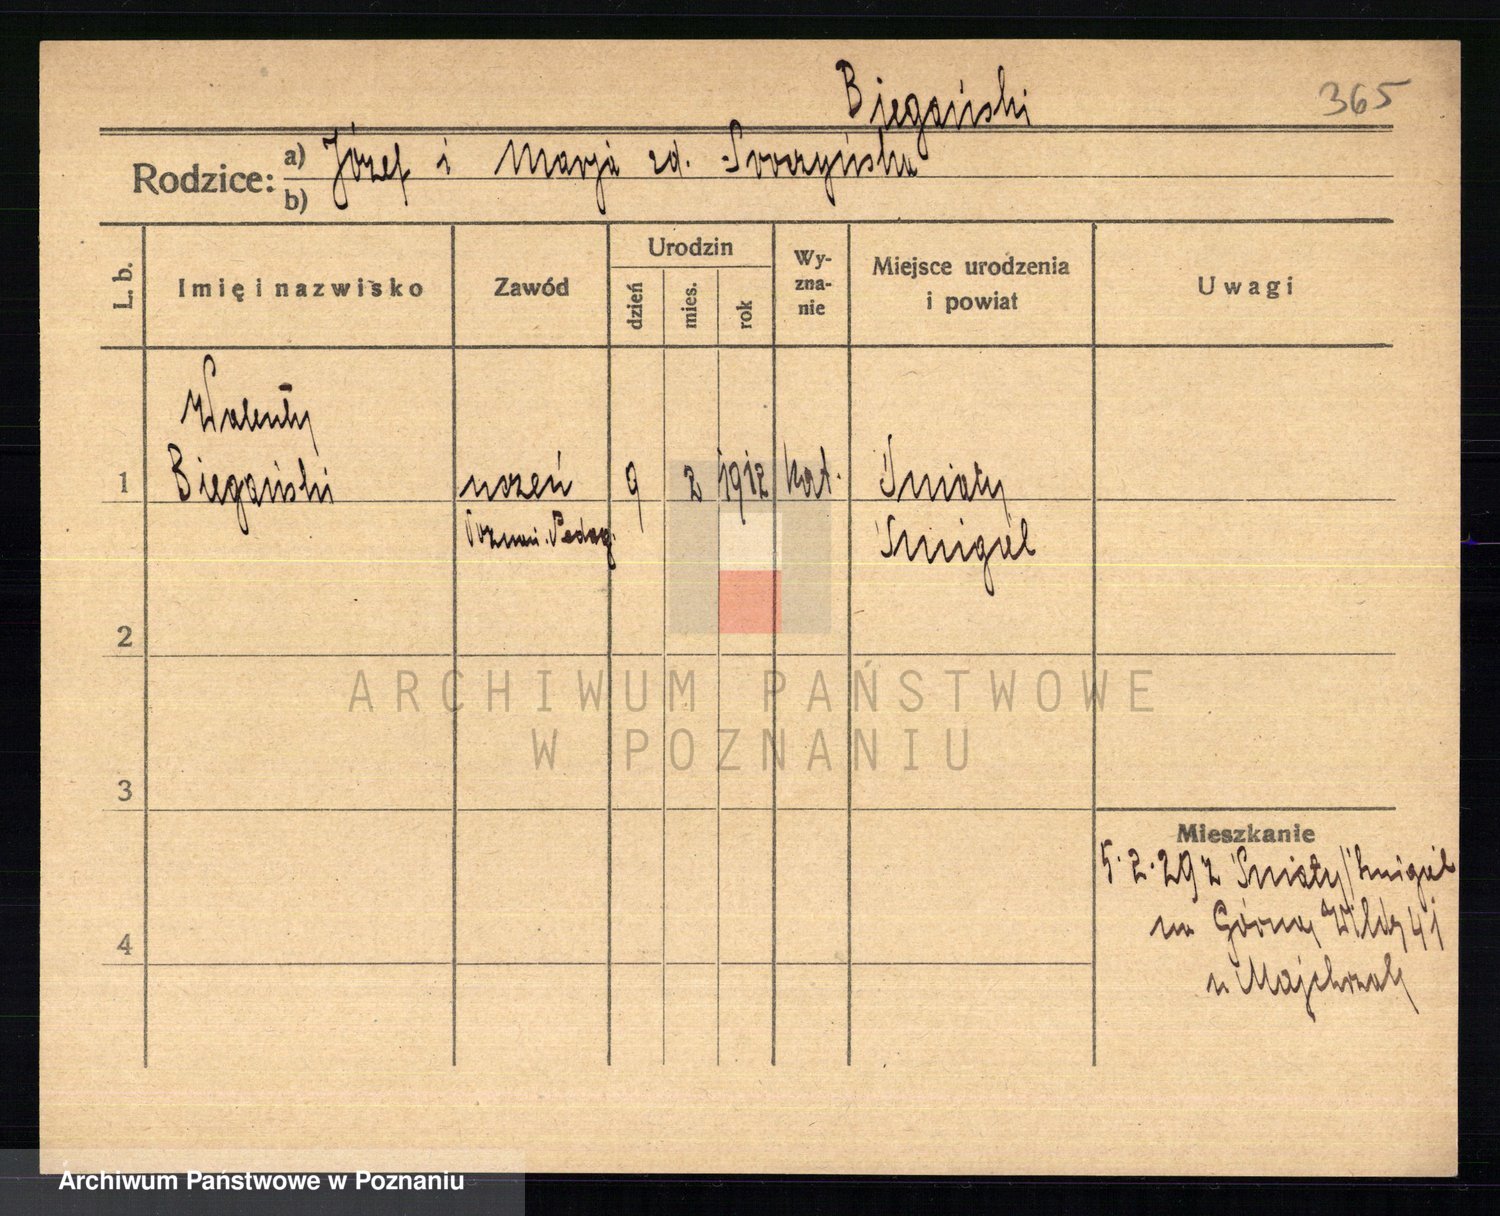 Biegański
365
Rodzice: a) Józef i Marja zd.
b)
L. b.
Imię i nazwisko
Zawód
Urodzin
dzień
mies.
rok
Wy-
zna-
nie
Miejsce urodzenia
i powiat
Uwagi
Walenty
1 Biegański uczeń 9 2 1912 kat. Śniaty
Poznań. Pedag. Śmigiel
2
ARCHIWUM PAŃSTWOWE
W POZNANIU
3
Mieszkanie
5.2.29 z Śniaty/Śmigiel
na Górną Wildę 41
4
u Majchrzak
Archiwum Państwowe w Poznaniu